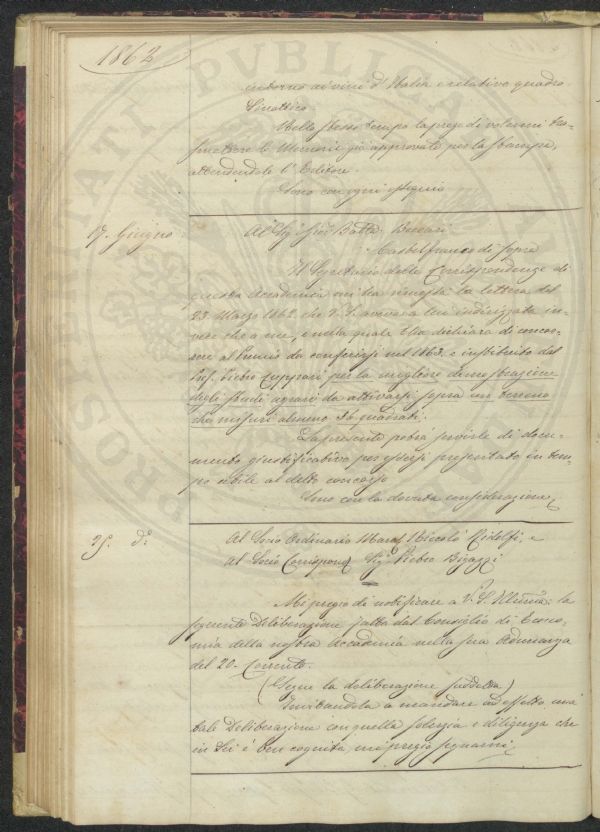 1862
intorno ai vini d'Italia e relativo quadro
Sinottico.
Nello stesso tempo la prego di volermi tras-
mettere le Memorie già approvate per la stampa,
attendendole l'Editore.
Sono con ogni ossequio
17. Giugno
Al Sig. Gio: Batta
Castelfranco di sopra
Il Segretario delle Corrispondenze di
questa Accademia mi ha rimessa la lettera del
23 Marzo 1862. che V. S. aveva a lui indirizzata in-
vece che a me, e nella quale Ella dichiara di concor-
rere al Premio da conferirsi nel 1863. e instituito dal
Prof. Pietro Cuppari per la migliore dimostrazione
degli studi agrari da attivarsi sopra un terreno
che misuri almeno quadrati.
La presente potrà servirle di docu-
mento giustificativo per essersi presentato in tem-
po utile al detto concorso
Sono con la dovuta considerazione
25. do:
Al Socio Ordinario March Niccolò Ridolfi, e
Al Socio Corrispond Sig. Pietro Bigazzi
Mi pregio di notificare a V. S. Illustrma: la
seguente Deliberazione fatta dal Consiglio di Econo-
mia della nostra Accademia nella sua Adunanza
del 20. Corrente.
(Segue la deliberazione suddetta)
Invitandola a mandare ad effetto una
tale Deliberazione con quella solerzia e diligenza che
in Lei è ben cognita, mi pregio segnarmi
PUBLICA